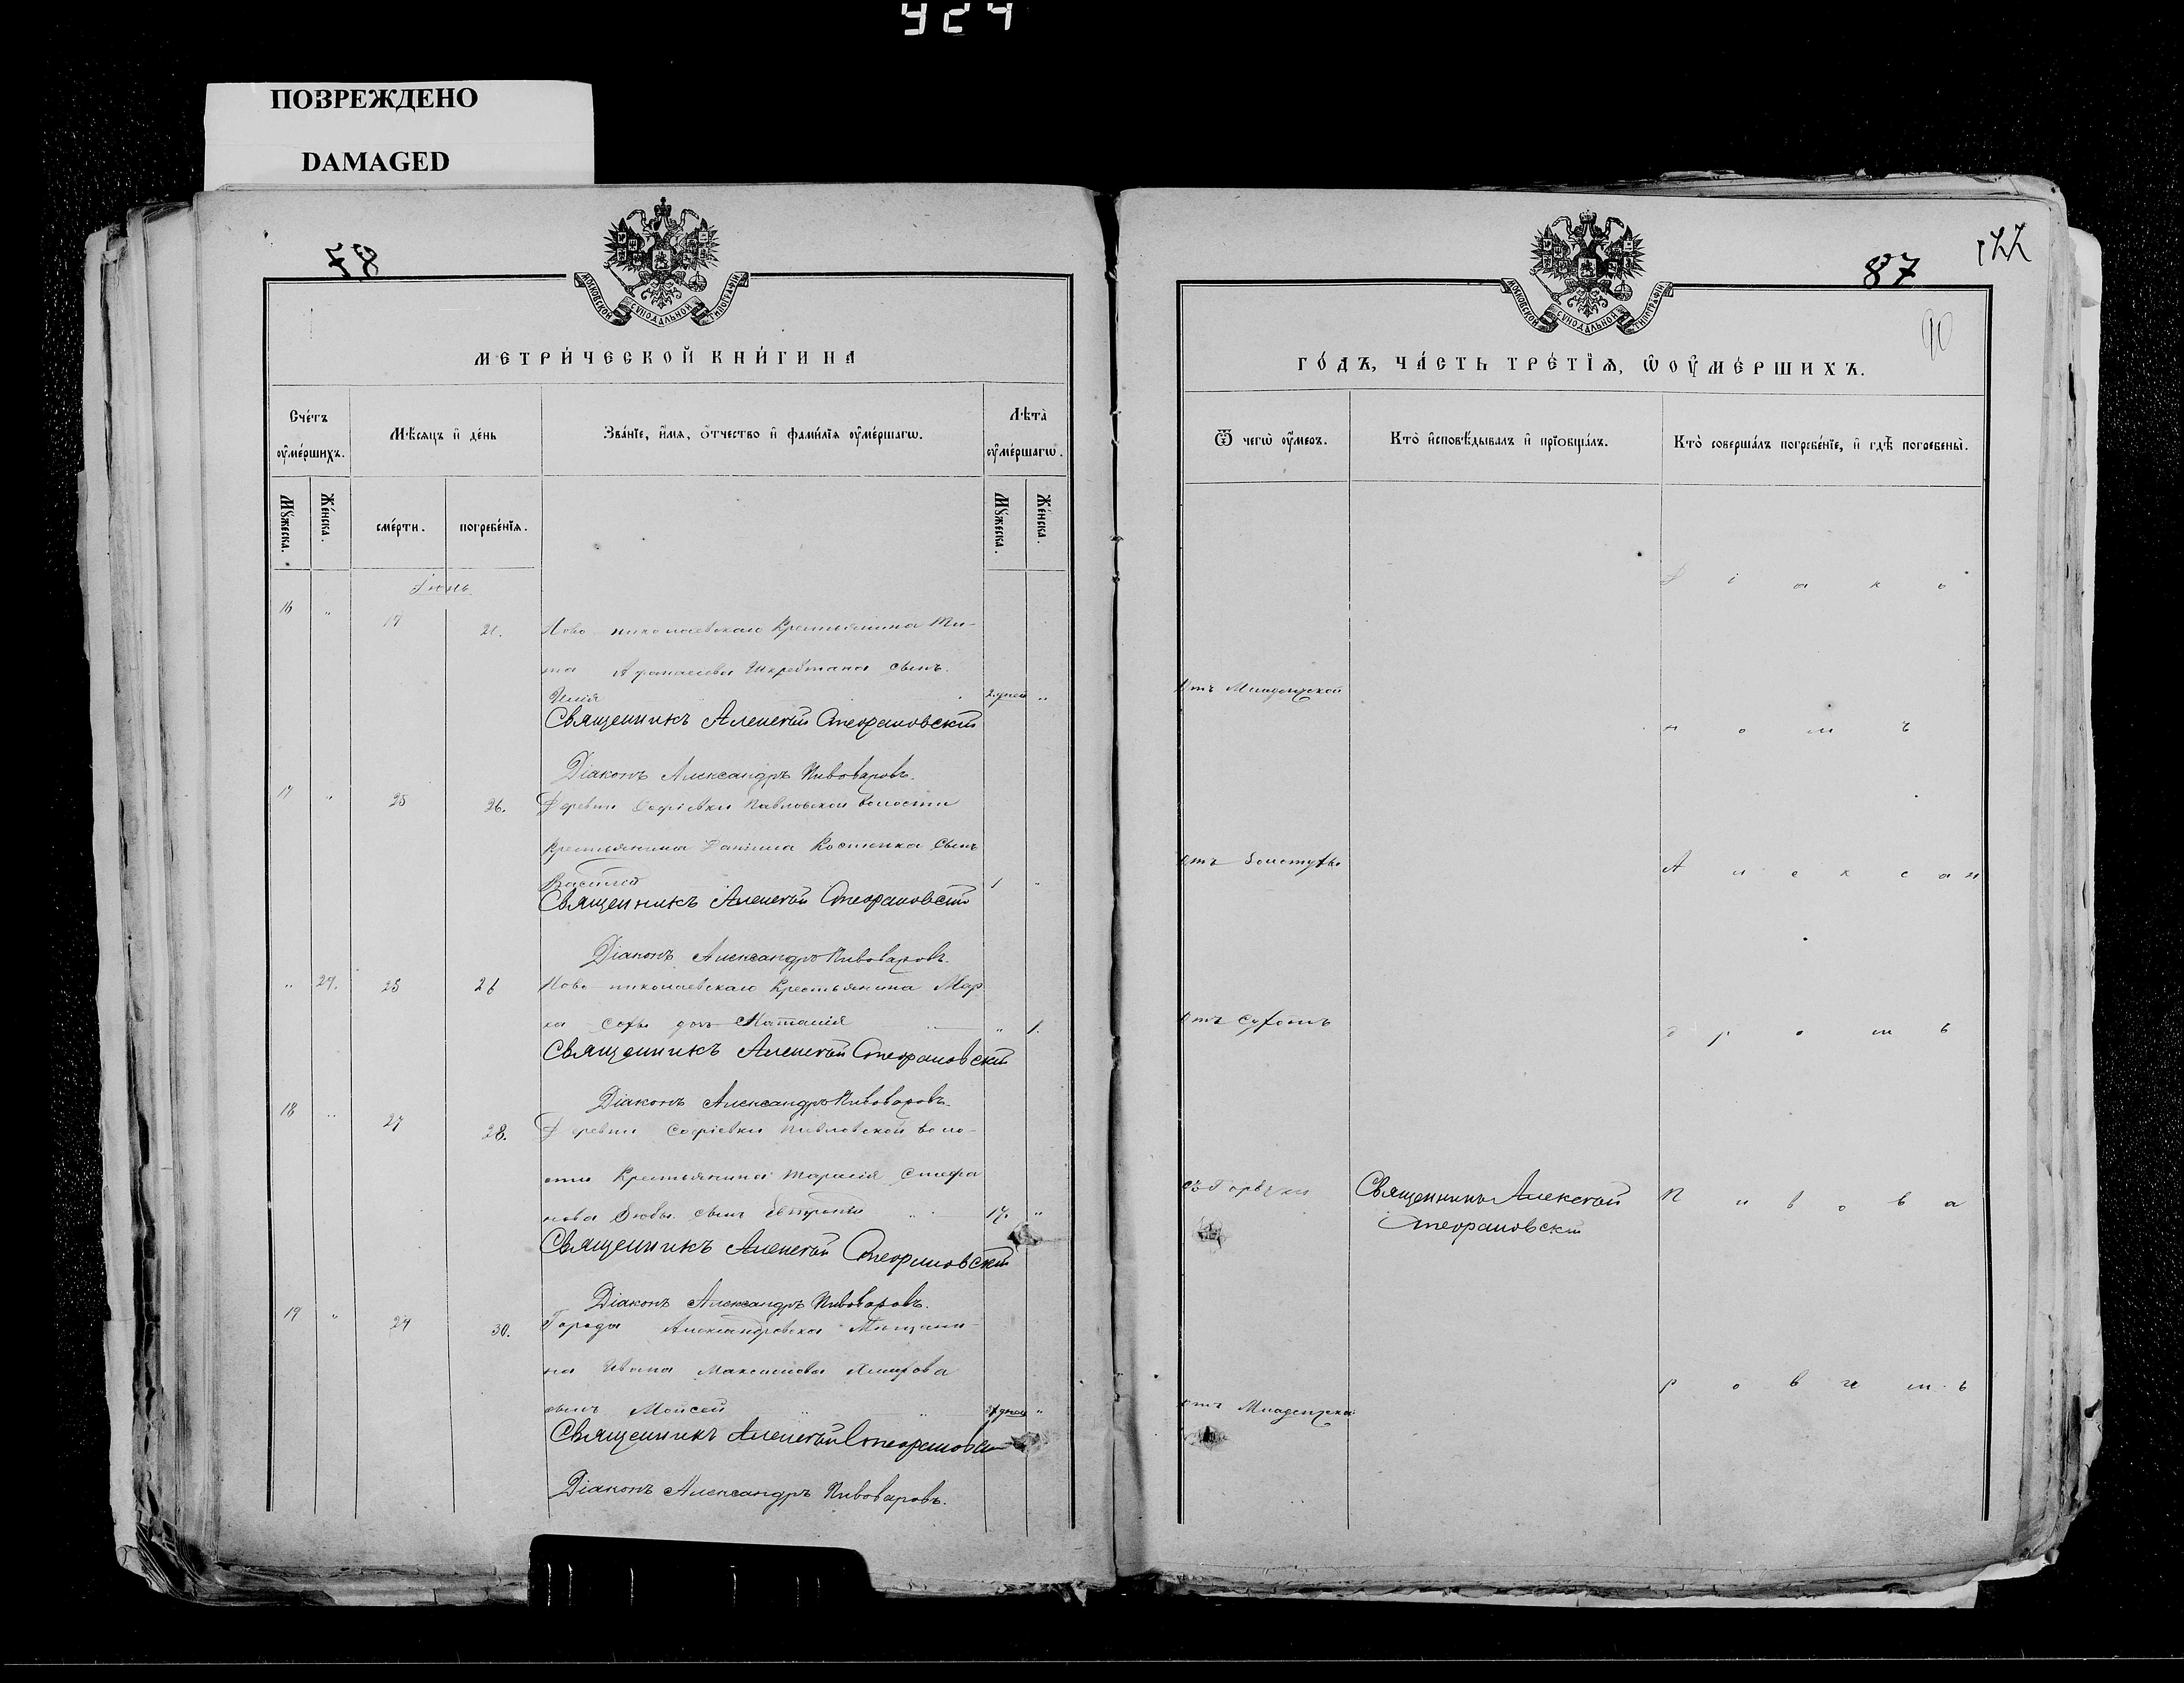 424
ПОВРЕЖДЕНО
DAMAGED
78
МОСКОВСКОЙ СѴНОДАЛЬНОЙ ТИПОГРАФІИ
МЕТРИ́ЧЕСКОЙ КНИ́ГИ НА
Сче́тъ ᲂу҆ме́ршихъ.
Мѣ́сяцъ и҆ де́нь
Зва́нїе, и҆́мѧ, о҆́тчество и҆ фами́лїѧ ᲂу҆ме́ршагѡ.
Лѣ́та ᲂу҆ме́ршагѡ.
Мꙋ́жеска.
Же́нска.
сме́рти.
погребе́нїѧ.
Мꙋ́жеска.
Же́нска.
Іюнь
16 " 19 21. Ново-николаевскаго Крестьянина Ти-
та Афанасьева сынъ
Илія 2 дней "
Священникъ Алексѣй Стефановскій
Діаконъ Александръ Пивоваровъ.
17 " 25 26. Деревни Софіевки Павловской волости
Крестьянина Даніила сынъ
Василій 1 "
Священникъ Алексѣй Стефановскій
Діаконъ Александръ Пивоваровъ.
" 25 26 Ново-николаевскаго Крестьянина Мар-
ка дочь Наталія " 1.
Священникъ Алексѣй Стефановскій
Діаконъ Александръ Пивоваровъ.
18 " 27 28. Деревни Софіевки Павловской воло-
сти Крестьянина Тарасія Стефа
нова сынъ "
Священникъ Алексѣй Стефановскій
Діаконъ Александръ Пивоваровъ.
19 " 29 30. Города Александровска Мѣщани-
на Ивана Максимова
сынъ Моисей "
Священникъ Алексѣй Стефановскій
Діаконъ Александръ Пивоваровъ.
87
122
90
МОСКОВСКОЙ СѴНОДАЛЬНОЙ ТИПОГРАФІИ
ГО́ДЪ, ЧА́СТЬ ТРЕ́ТЇѦ, Ѡ҆ ОУ҆МЕ́РШИХЪ.
Ѿ чегѡ̀ ᲂу҆́меръ.
Кто̀ и҆сповѣ́дывалъ и҆ прїѡбща́лъ.
Кто̀ соверша́лъ погребе́нїе, и҆ гдѣ̀ погребены̀.
Діако
Отъ Младенческой
номъ
Алексан
дромъ
Священникъ Алексѣй
Стефановскій
Пивова
ровымъ
отъ Младенческой